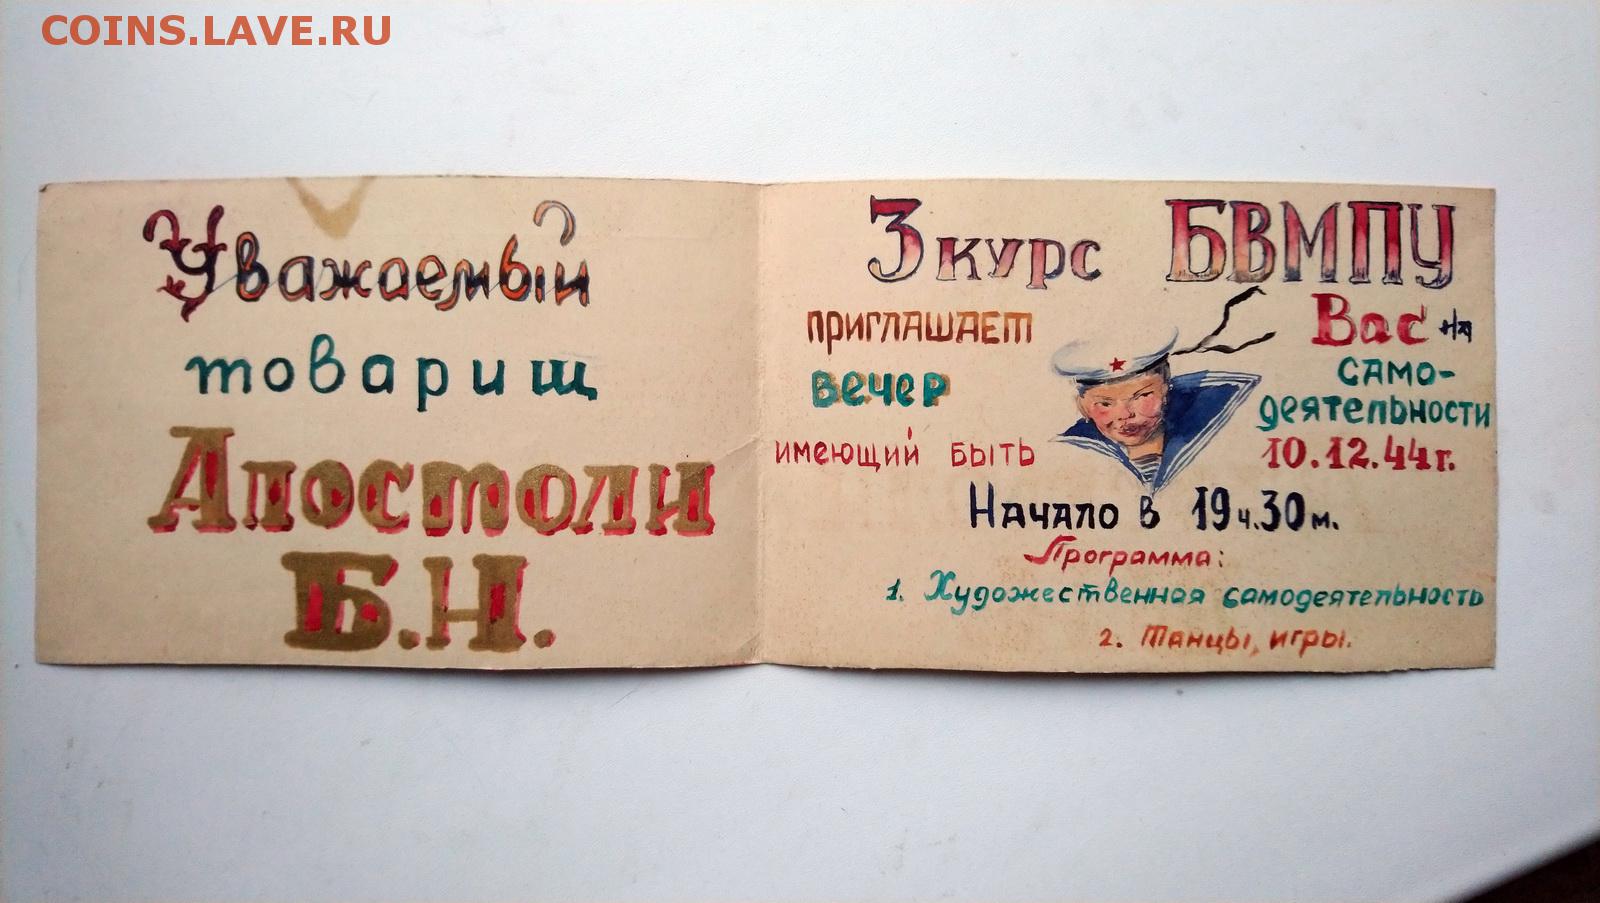 COINS.LAVE.RU
Уважаемый
товарищ
Апостоли
Б.Н.
3 курс БВМПУ
приглашает Вас на
вечер само-
деятельности
имеющий быть 10.12.44г.
Начало в 19ч.30м.
Программа:
1. Художественная самодеятельность
2. Танцы, игры.